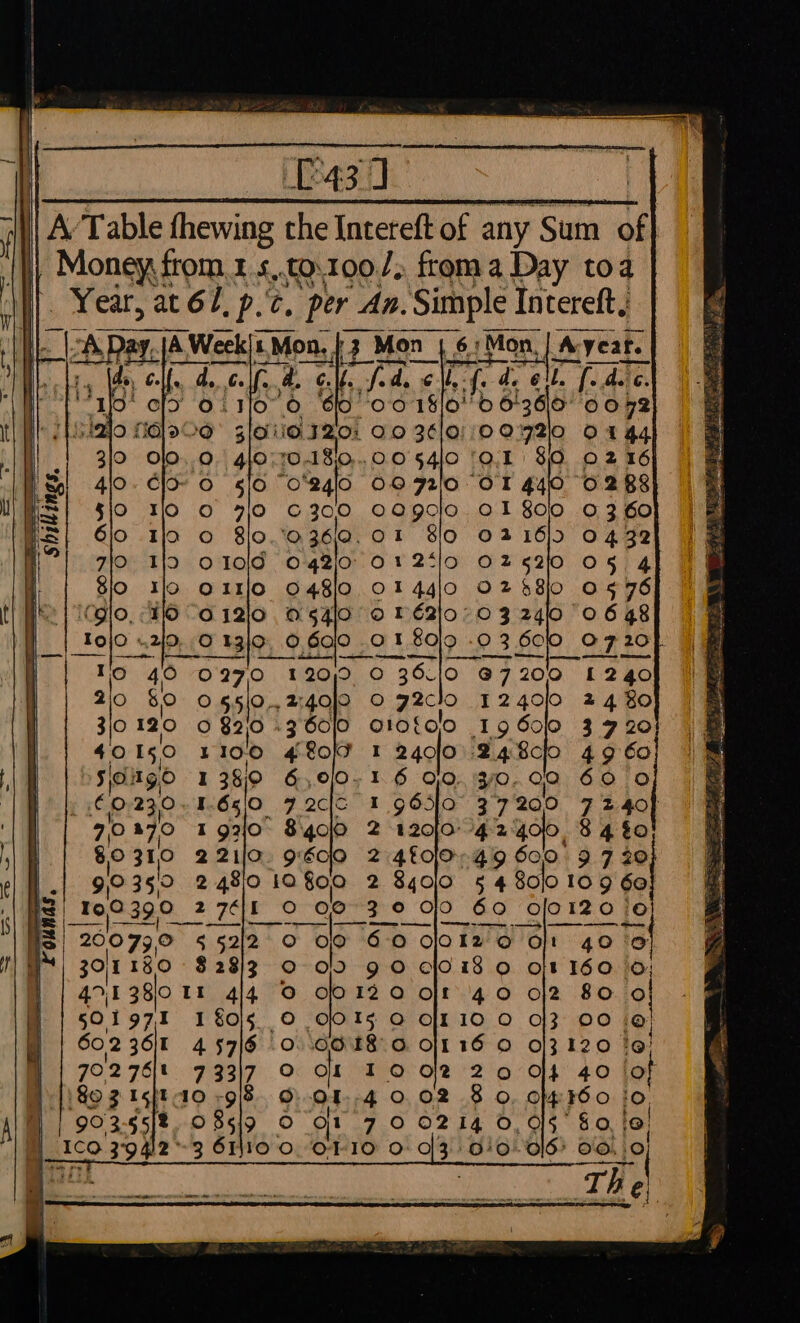 [ 43 ]
A Table ſhewing the Intereſt of any Sum of
Money, from 1 s. to 100 l. from a Day to a
Year, at 6 l. p. c. per An. Simple Intereſt.
A Day. | A Week | 1 Mon. | 3 Mon | 6 Mon. | A year.
d. c. | ſ. d. c. | ſ. d. c. | l. ſ. d. c. | l. ſ. d. c. | l. ſ. d. c.
Shillings.
1 | 0 0 | 0 0 1 | 0 0 6 | 0 0 0 18 | 0 0 0 36 | 0 0 0 72
2 | 0 0 | 0 0 3 | 0 0 12 | 0 0 0 36 | 0 0 0 72 | 0 0 1 44
3 | 0 0 | 0 0 4 | 0 0 18 | 0 0 0 54 | 0 0 1 8 | 0 0 2 16
4 | 0 0 | 0 0 5 | 0 0 24 | 0 0 0 72 | 0 0 1 44 | 0 0 2 88
5 | 0 1 | 0 0 7 | 0 0 30 | 0 0 0 90 | 0 0 1 80 | 0 0 3 60
6 | 0 1 | 0 0 8 | 0 0 36 | 0 0 1 8 | 0 0 2 16 | 0 0 4 32
7 | 0 1 | 0 0 10 | 0 0 42 | 0 0 1 26 | 0 0 2 52 | 0 0 5 4
8 | 0 1 | 0 0 11 | 0 0 48 | 0 0 1 44 | 0 0 2 88 | 0 0 5 76
9 | 0 1 | 0 0 12 | 0 0 54 | 0 0 1 62 | 0 0 3 24 | 0 0 6 48
10 | 0 2 | 0 0 13 | 0 0 60 | 0 0 1 80 | 0 0 3 60 | 0 0 7 20
Pounds.
1 | 0 4 | 0 0 27 | 0 1 20 | 0 0 3 60 | 0 0 7 20 | 0 1 2 40
2 | 0 8 | 0 0 55 | 0 2 40 | 0 0 7 20 | 0 1 2 40 | 0 2 4 80
3 | 0 12 | 0 0 82 | 0 3 60 | 0 0 10 80 | 0 1 9 60 | 0 3 7 20
4 | 0 15 | 0 1 10 | 0 4 80 | 0 1 2 40 | 0 2 4 80 | 0 4 9 60
5 | 0 19 | 0 1 38 | 0 6 0 | 0 1 6 0 | 0 3 0 0 | 0 6 0 0
6 | 0 23 | 0 1 65 | 0 7 20 | 0 1 9 60 | 0 3 7 20 | 0 7 2 40
7 | 0 27 | 0 1 93 | 0 8 40 | 0 2 1 20 | 0 4 2 40 | 0 8 4 80
8 | 0 31 | 0 2 21 | 0 9 60 | 0 2 4 80 | 0 4 9 60 | 0 9 7 20
9 | 0 35 | 0 2 48 | 0 10 80 | 0 2 8 40 | 0 5 4 80 | 0 10 9 60
10 | 0 39 | 0 2 76 | 1 0 0 | 0 3 0 0 | 0 6 0 0 | 0 12 0 0
20 | 0 79 | 0 5 52 | 2 0 0 | 0 6 0 0 | 0 12 0 0 | 1 4 0 0
30 | 1 18 | 0 8 28 | 3 0 0 | 0 9 0 0 | 0 18 0 0 | 1 16 0 0
40 | 1 38 | 0 11 4 | 4 0 0 | 0 12 0 0 | 1 4 0 0 | 2 8 0 0
50 | 1 97 | 1 1 80 | 5 0 0 | 0 15 0 0 | 1 10 0 0 | 3 0 0 0
60 | 2 36 | 1 4 57 | 6 0 0 | 0 18 0 0 | 1 16 0 0 | 3 12 0 0
70 | 2 76 | 1 7 33 | 7 0 0 | 1 1 0 0 | 2 2 0 0 | 4 4 0 0
80 | 3 15 | 1 10 9 | 8 0 0 | 1 4 0 0 | 2 8 0 0 | 4 16 0 0
90 | 3 55 | 0 85 | 9 0 0 | 1 7 0 0 | 2 14 0 0 | 5 8 0 0
100 | 3 94 | 2 3 61 | 10 0 0 | 1 10 0 0 | 3 0 0 0 | 6 0 0 0
The